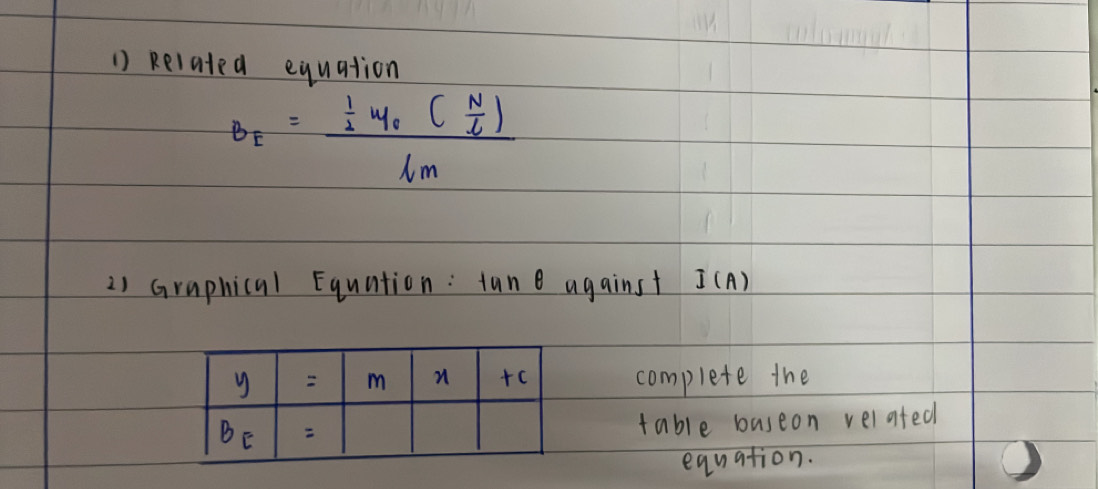 1) Related equation
B_E = ½ μ₀ (N/l)
lm
2) Graphical Equation : tan θ against I(A)
y = m x +c
complete the
B_E =
table baseon related
equation.